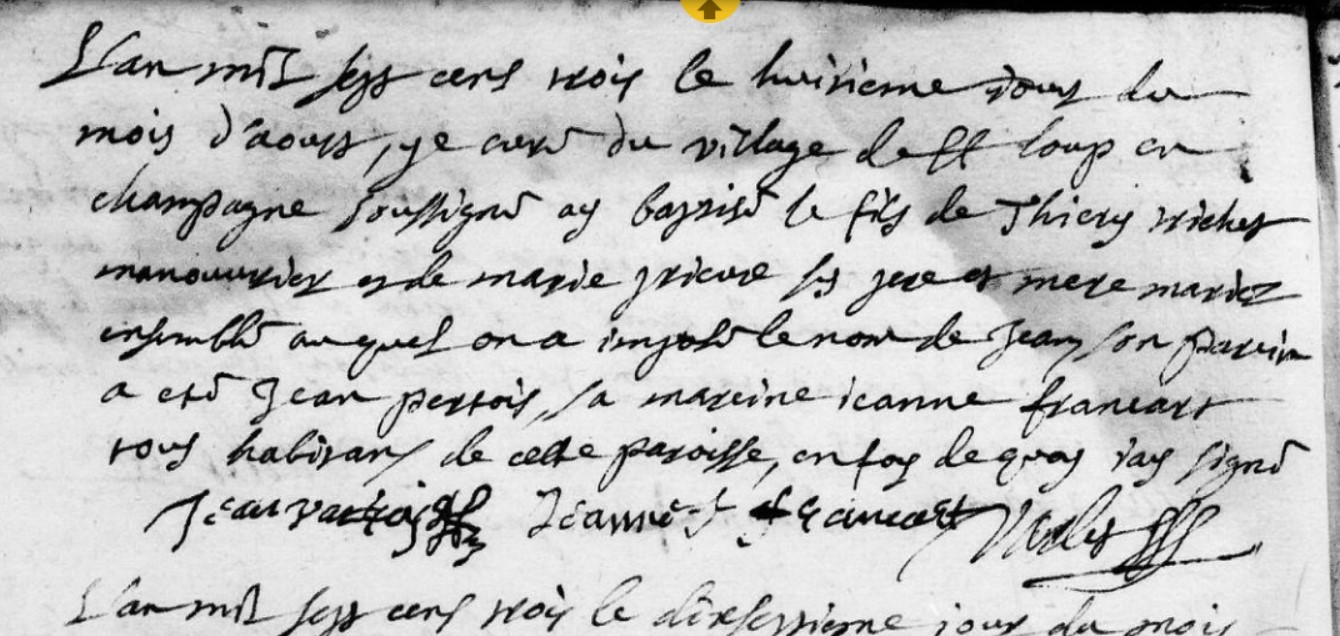 L'an mil sept cens trois le huitieme jour du
mois d'aoust, je curé du village de St loup en
champagne soussigné ay baptisé le fils de Thiery trichet
manouvrier et de marie prieure ses pere et mere mariez
ensemble auquel on a imposé le nom de Jean, son parein
a eté Jean pertois, sa mareine ieanne francart
tous habitans de cette paroisse, en foy de quoy i'ay signé
Jean partois Jeanne francart
L'an mil sept cens trois le dixseptieme jour du mois